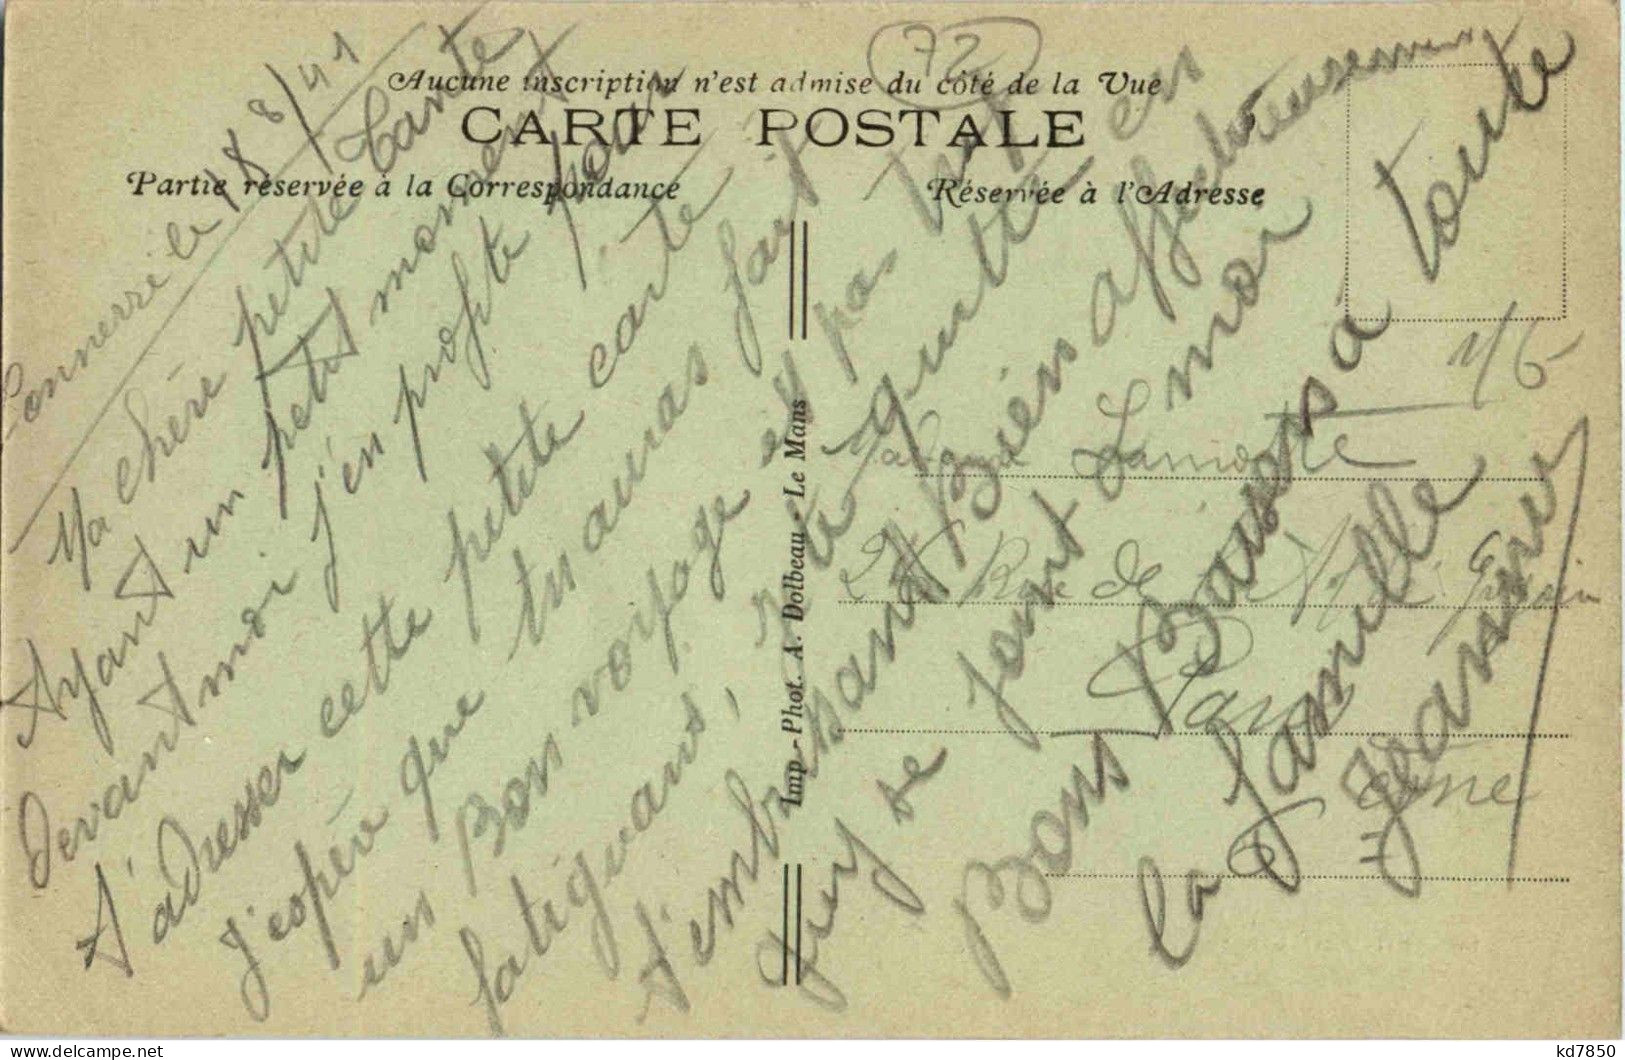 72
Aucune inscription n'est admise du côté de la Vue
CARTE POSTALE
Partie réservée à la Correspondance
Réservée à l'Adresse
Connerré le 18/8/41
Ma chère petite Tante
Ayant un petit moment
devant moi j'en profite pour
t'adresser cette petite carte
j'espère que tu auras fait
un Bon voyage et pas trop
fatiguant,
te quitte en
t'embrassant Bien affectueusement
se joint
Bons Baisers à toute
la famille
Imp.-Phot. A. Dolbeau - Le Mans
Madame Lamotte
Rue de
Paris
Seine
kd7850